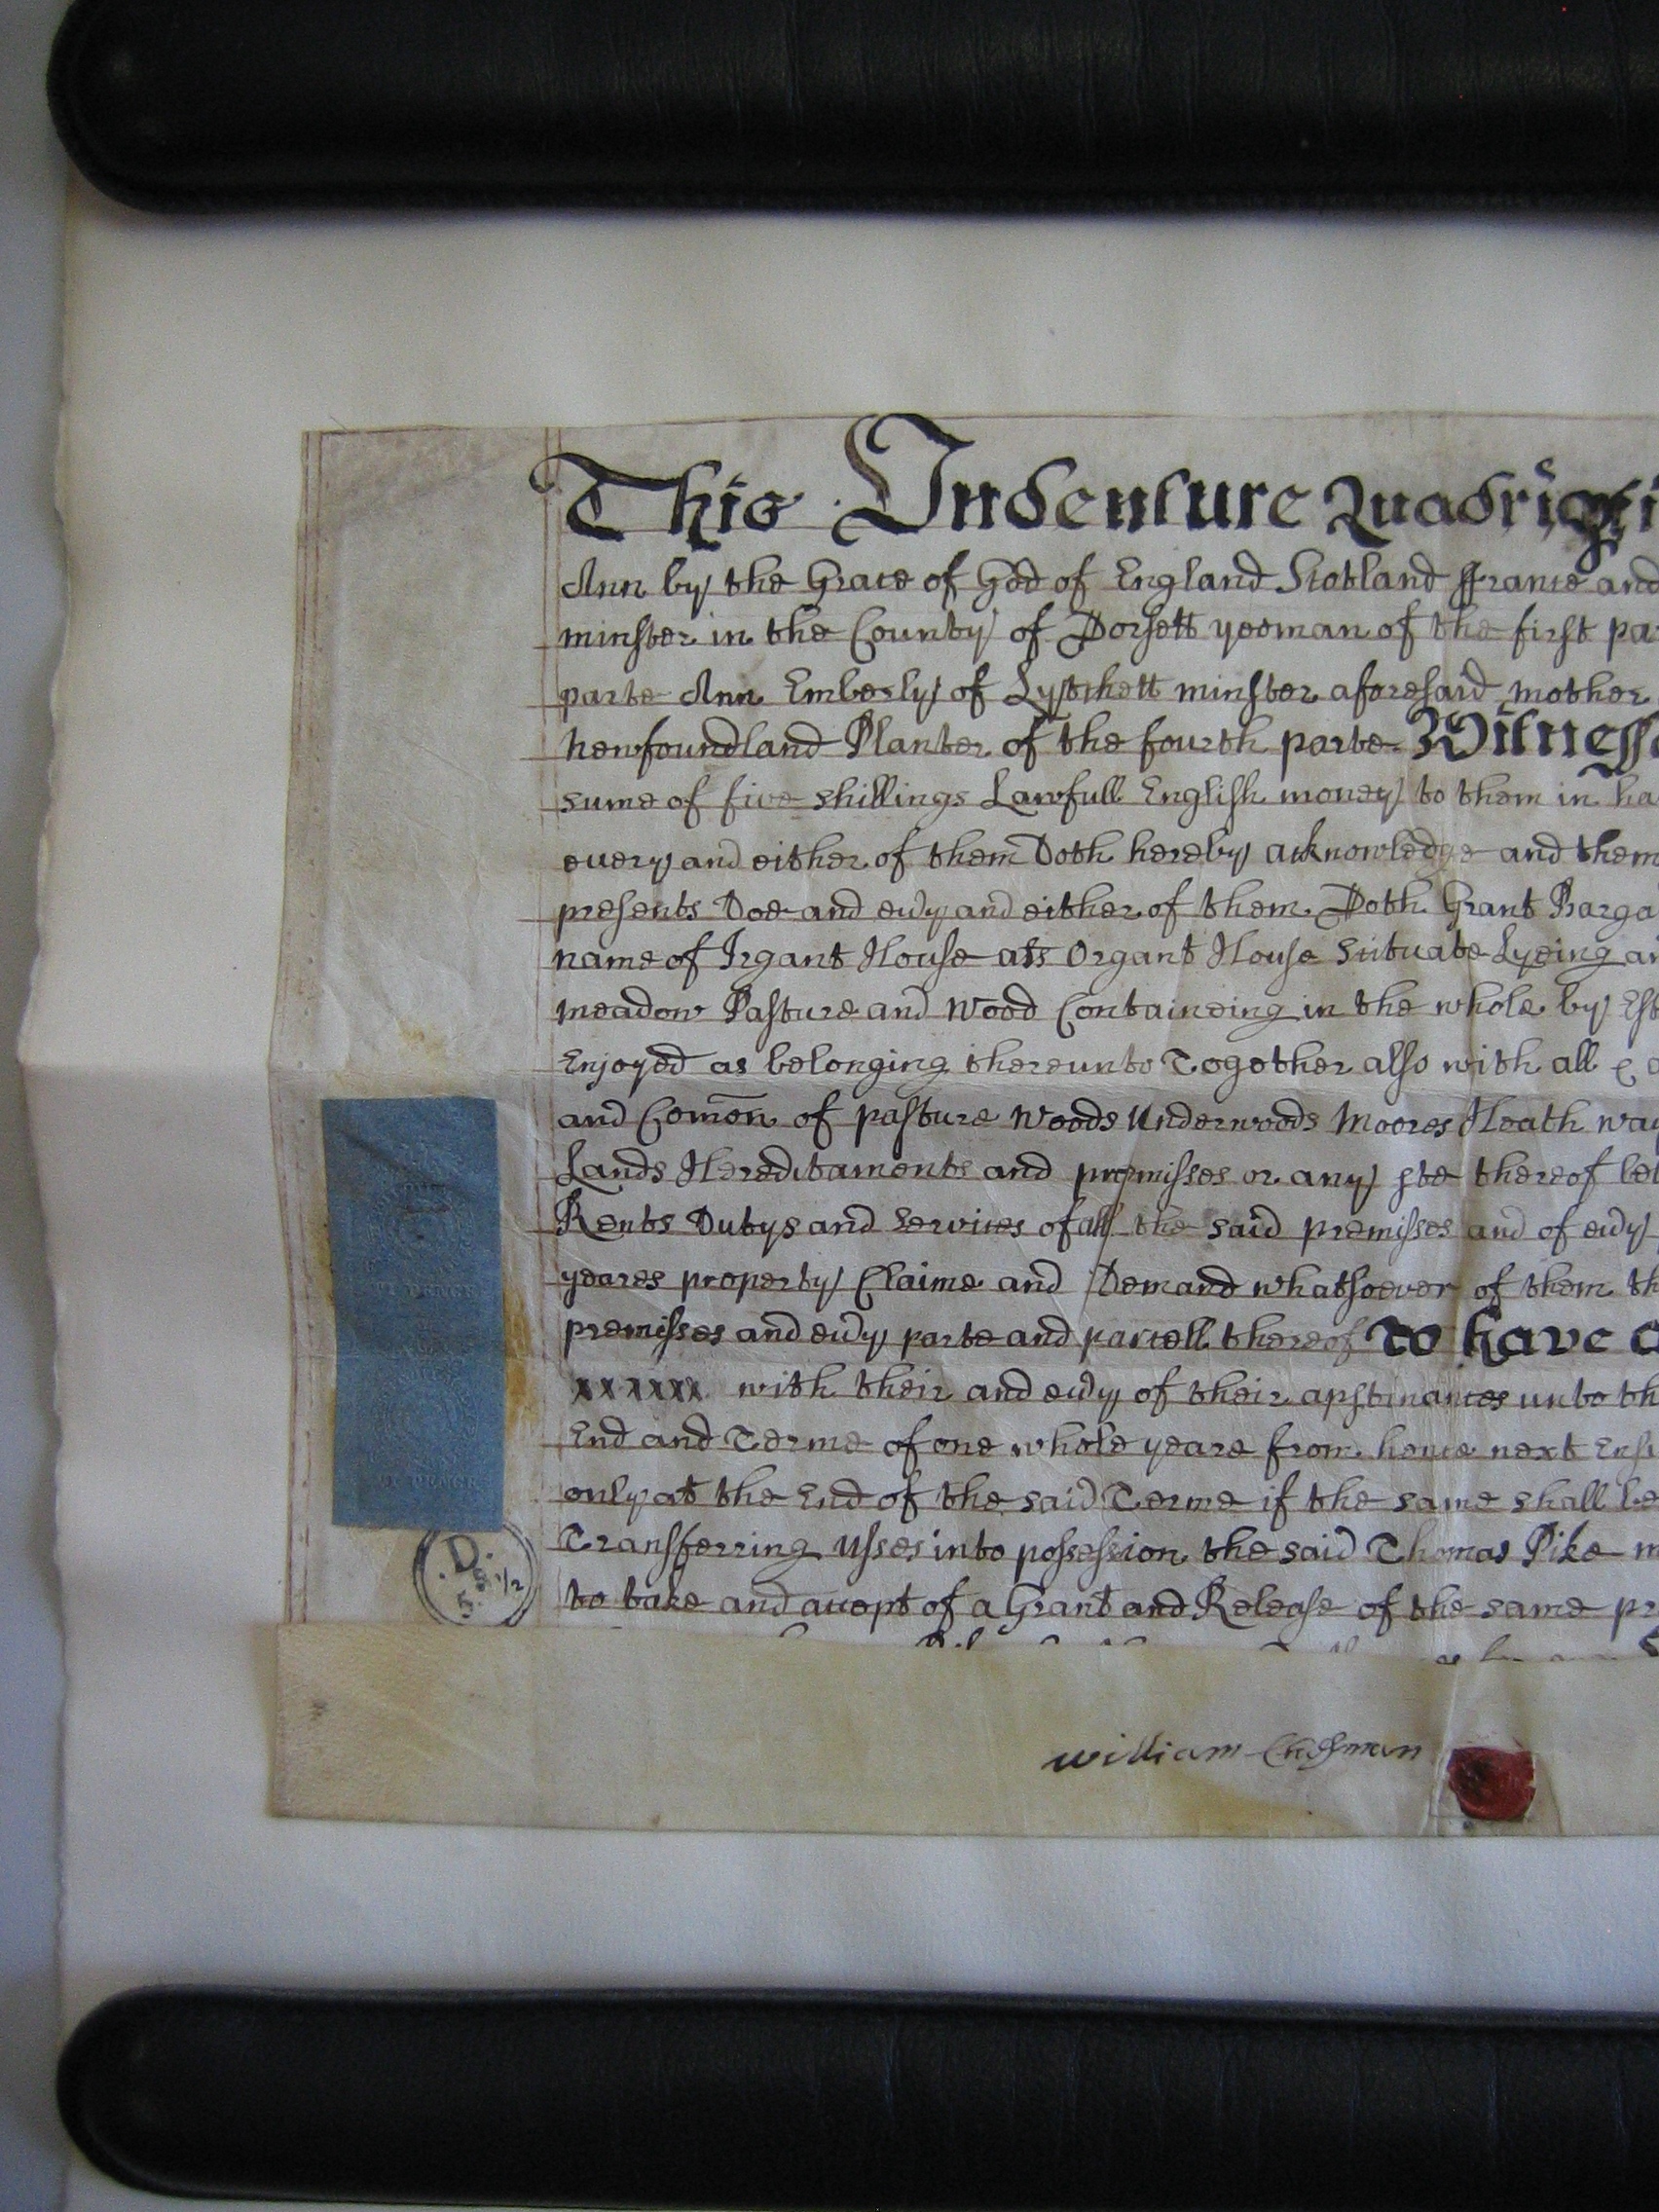 This Indenture Quadriparti
Ann by the Grace of God of England Scotland ffrance and
minster in the County of Dorsett yeoman of the first par
parte Ann Emberly of Lytchett minster aforesaid mother
newfoundland Planter of the fourth parte Witnesse
sume of five shillings Lawfull English money to them in ha
every and either of them Doth hereby acknowledge and them
presents Doe and evy and either of them Doth Grant Barga
name of Irgant House als Organt House Scituate Lyeing an
meadow Pasture and Wood Containeing in the whole by Est
Enjoyed as belonging thereunto Together also with all
and Comon of pasture Woods Underwoods Moores Heath way
Lands Hereditaments and premisses or any pte thereof bel
Rents Dutys and Services of all the said premisses and of evy
yeares property Claime and Demand whatsoever of them th
premisses and evy parte and parcell thereof To have a
xxxxxx with their and evy of their aprtinances unto th
End and Terme of one whole yeare from hence next Ensu
only at the End of the said Terme if the same shall be
Transferring Usses into possession the said Thomas Pike m
to take and accept of a Grant and Release of the same pr
PENCE
PENCE
D.
5.8.1/2
william